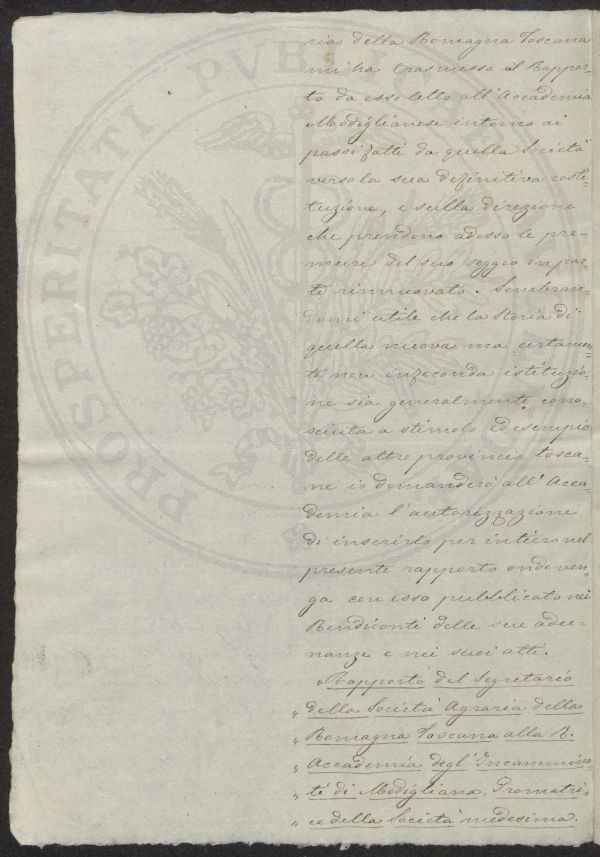 ria della Romagna Toscana
mi ha trasmesso il Rappor-
to da esso letto all'Accademia
Modiglianese intorno ai
passi fatti da quella Società
verso la sua definitiva costi-
tuzione, e sulla direzione
che prendono adesso le pre-
mure del suo seggio in par-
te rinnuovato. Sembran-
domi utile che la Storia di
quella nuova ma certamen-
te non infeconda istituzio-
ne sia generalmente cono-
sciuta a stimolo ed esempio
delle altre provincie tosca-
ne io domanderò all'Acca-
demia l'autorizzazione
di inserirlo per intiero nel
presente rapporto onde ven-
ga con esso pubblicato nei
Rendiconti delle sue adu-
nanze e nei suoi atti.
"Rapporto del Segretario
"della Società Agraria della
"Romagna Toscana alla R.
"Accademia degl'Incammina
"ti di Modigliana, Promotri-
"ce della Società medesima.
PROSPERITATI PVB